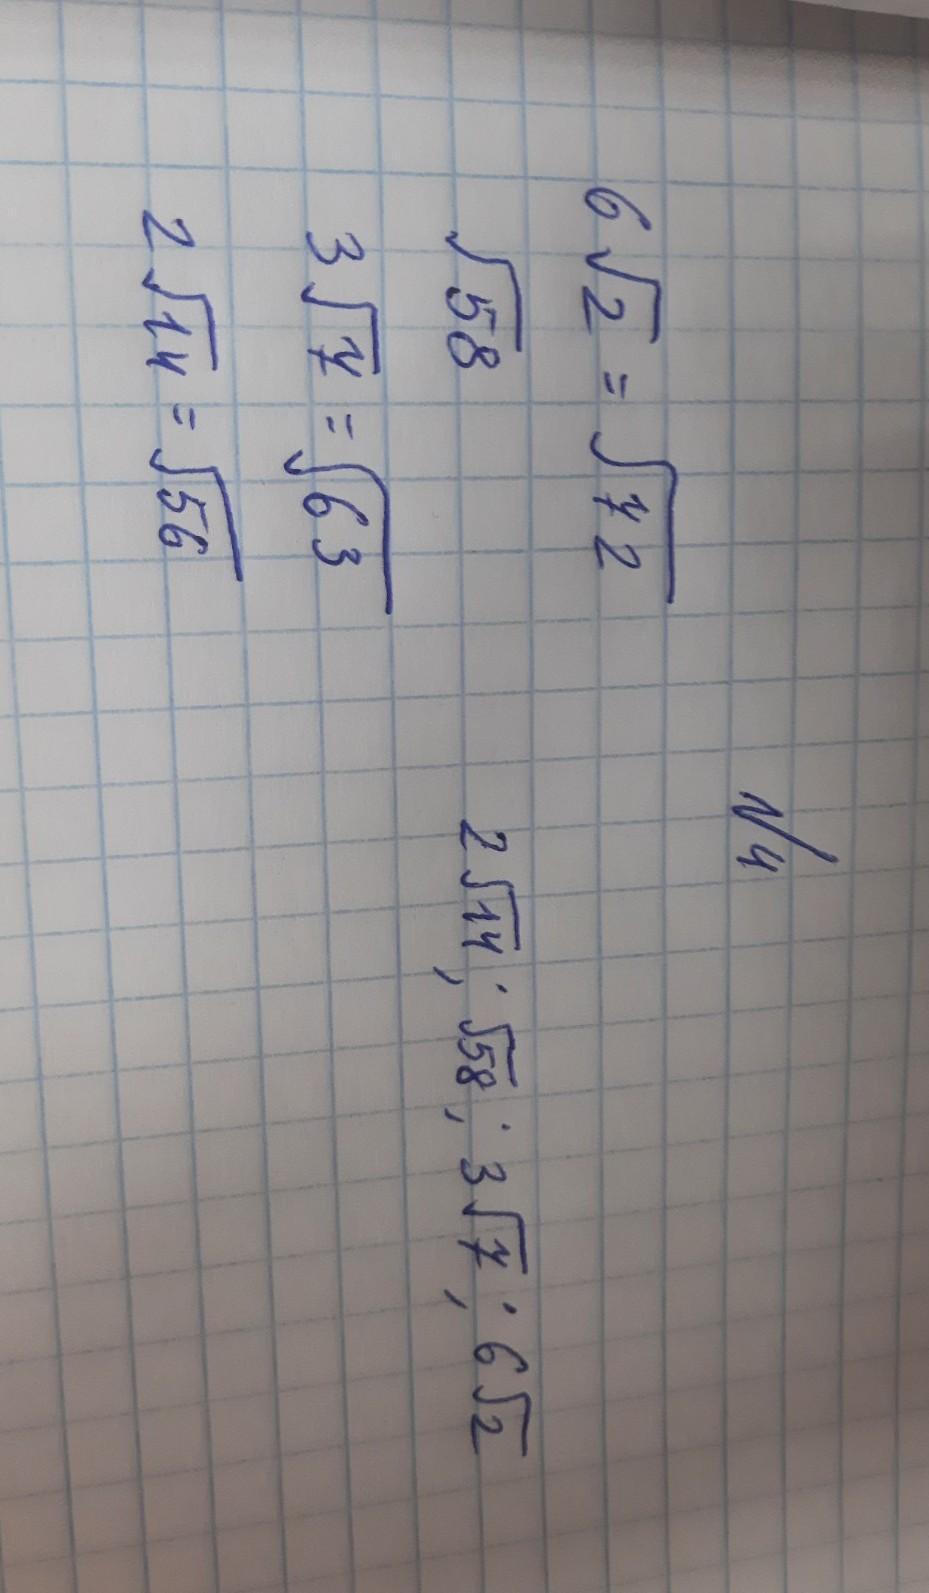 N4
6√2 = √72
√58
3√7 = √63
2√14 = √56
2√14; √58; 3√7; 6√2